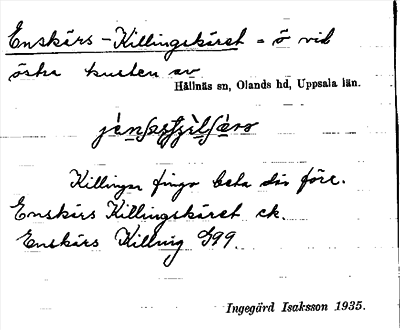 Enskärs-Killingskäret = ö vid
östra kusten av
Hållnäs sn, Olands hd, Uppsala län.
Killingar fingo beta där förr.
Enskärs Killingskäret ek.
Enskärs Killing G99.
Ingegärd Isaksson 1935.